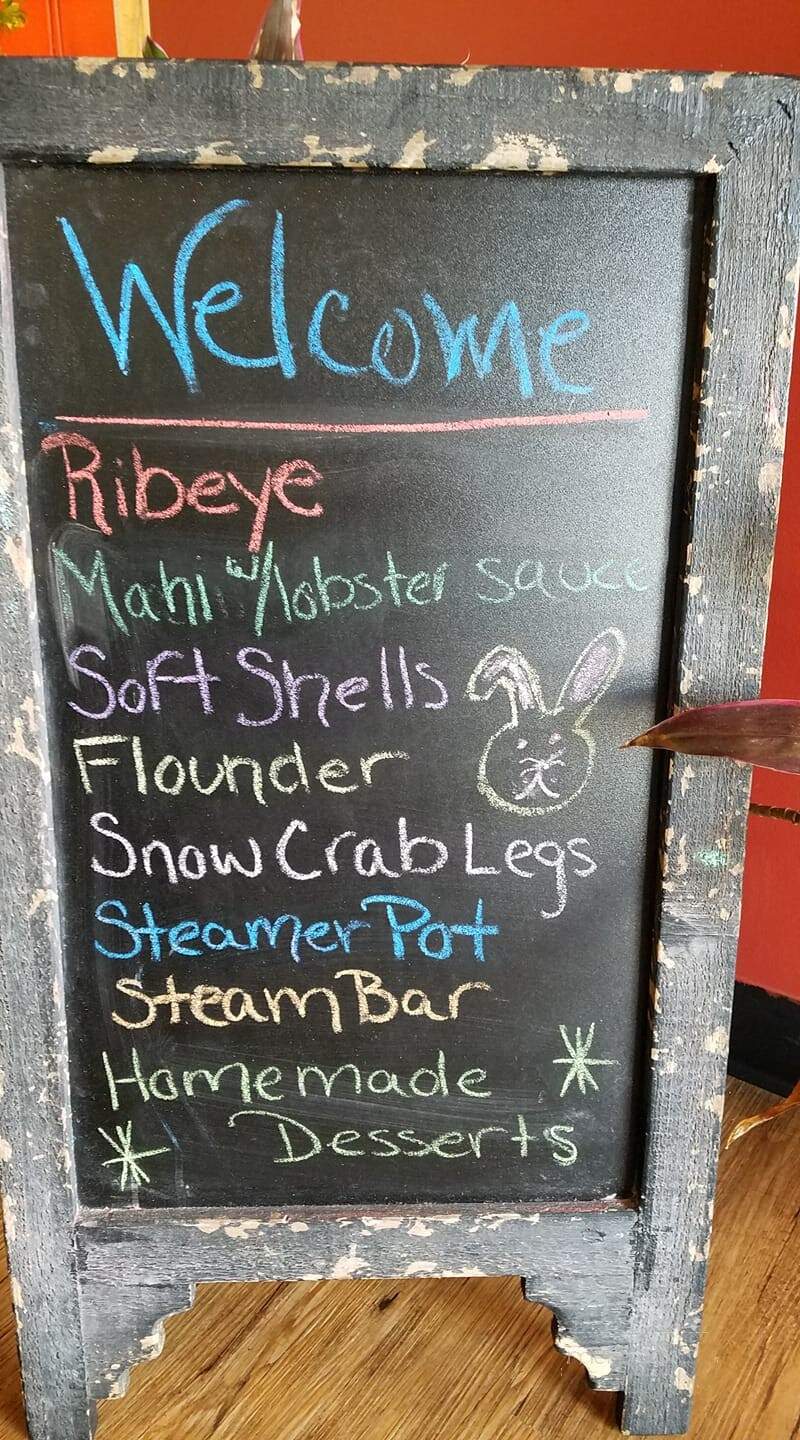 Welcome
Ribeye
Mahi w/lobster sauce
Soft Shells
Flounder
Snow Crab Legs
Steamer Pot
Steam Bar
Homemade
Desserts